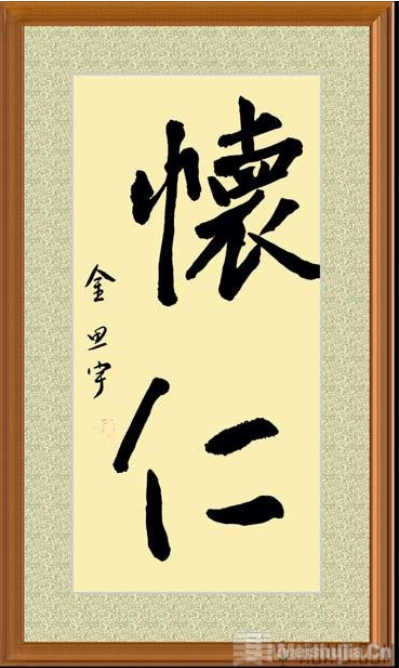 懷
仁
金思宇
Meishujia.Cn